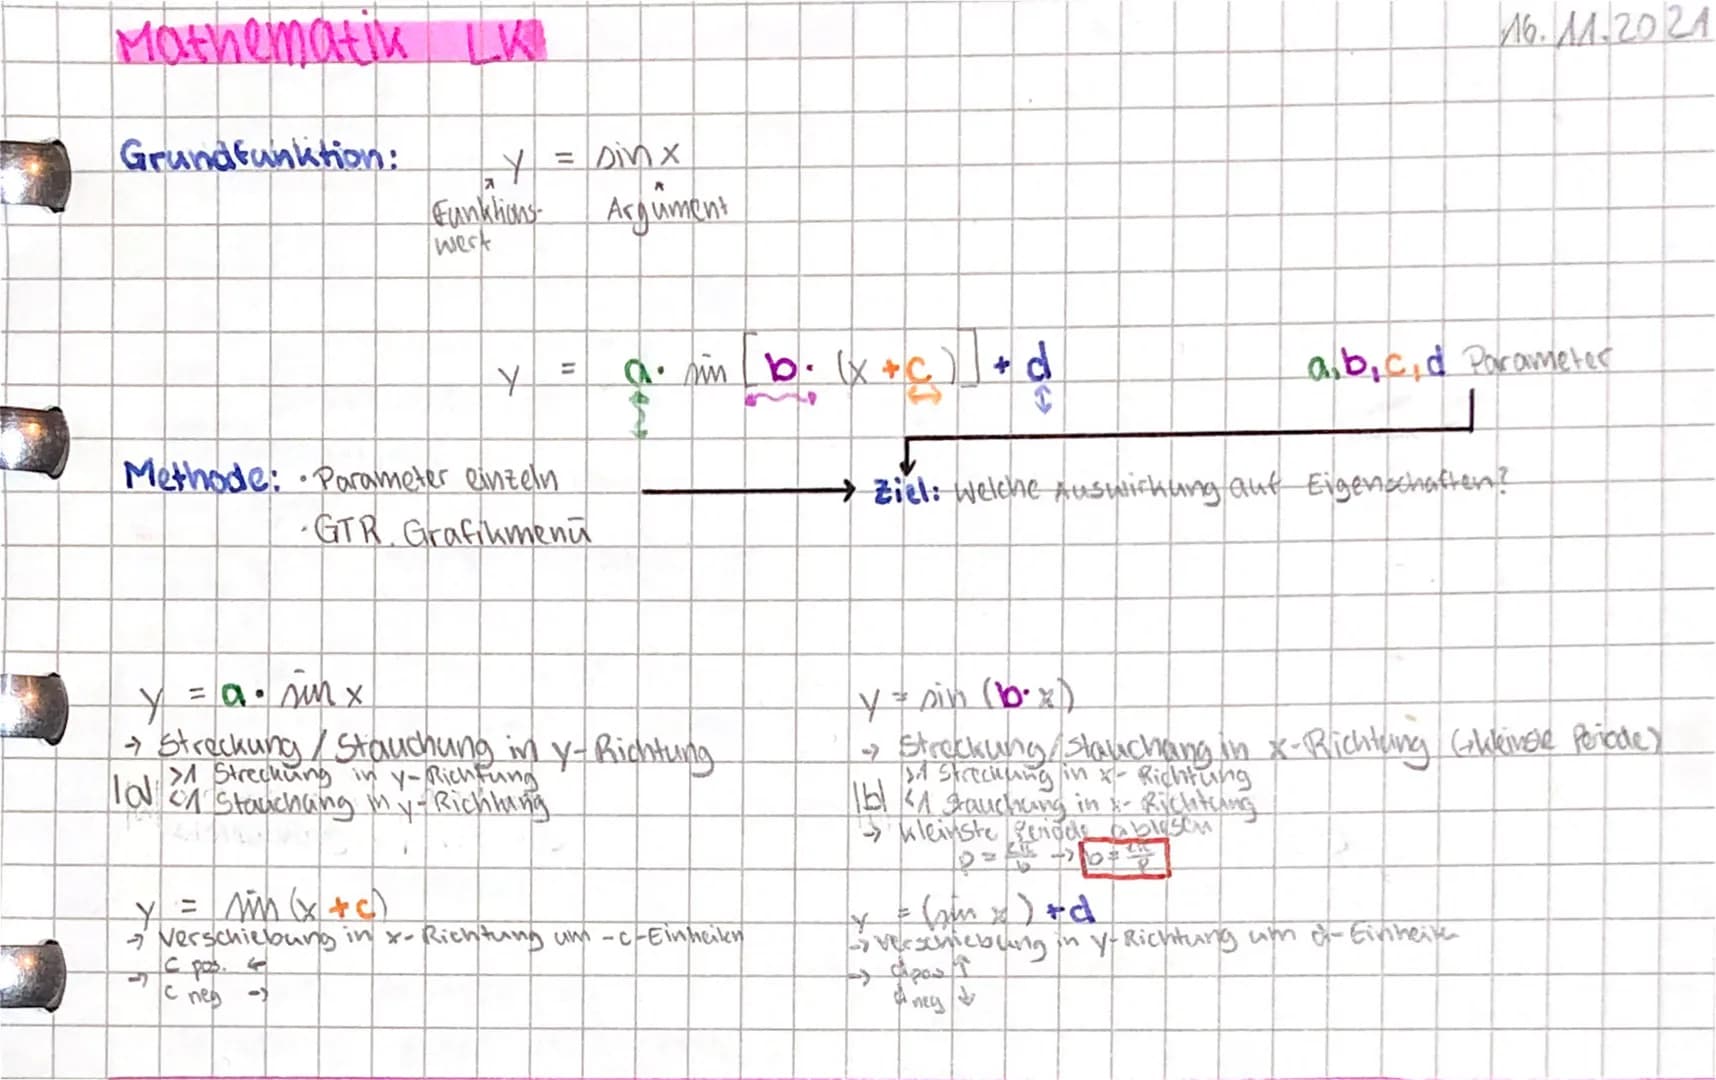 Mathematik LK
16.11.2021
Grundfunktion: y = sin x
Funktions- Argument
wert
y = a · sin [b · (x + c)] + d
a, b, c, d Parameter
Methode: · Parameter einzeln
· GTR. Grafikmenü
Ziel: Welche Auswirkung auf Eigenschaften?
y = a · sin x
→ Streckung / Stauchung in y-Richtung
|a| >1 Streckung in y-Richtung
<1 Stauchung in y-Richtung
y = sin (b · x)
→ Streckung/Stauchung in x-Richtung (→kleinste Periode)
|b| >1 Streckung in x-Richtung
<1 Stauchung in x-Richtung
→ kleinste Periode ablesen
p = 2π/b → b = 2π/p
y = sin (x + c)
→ Verschiebung in x-Richtung um -c-Einheiten
→ c pos. ←
c neg →
y = (sin x) + d
→ Verschiebung in y-Richtung um d-Einheiten
→ d pos ↑
d neg ↓